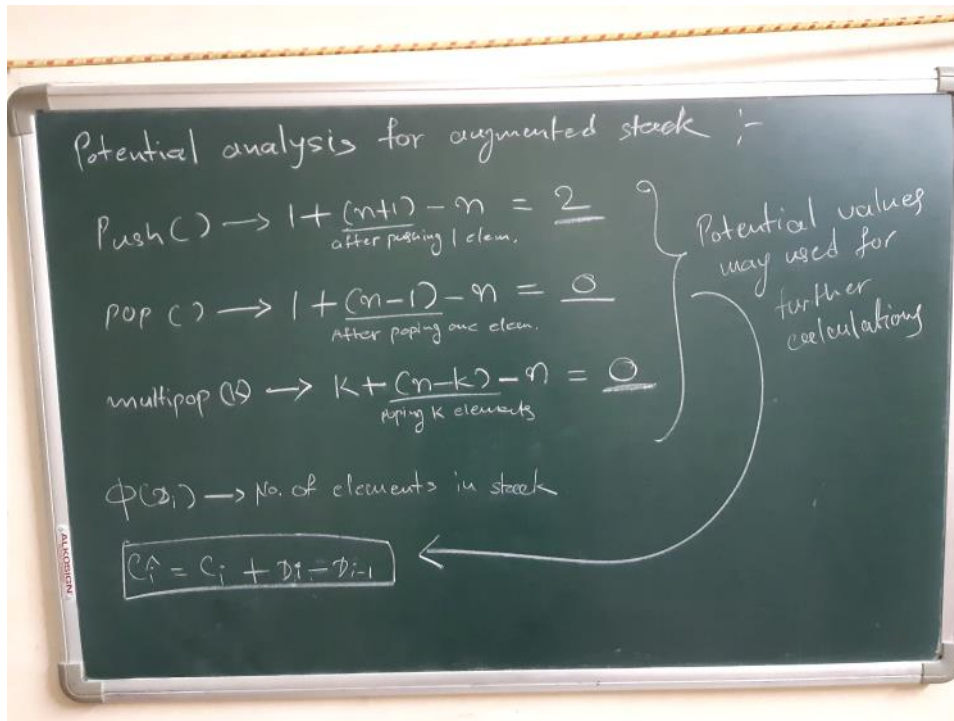 Potential analysis for augmented stack :-
Push() → 1 + (n+1) - n = 2
after pushing 1 elem.
Pop() → 1 + (n-1) - n = 0
After poping one elem.
multipop(k) → k + (n-k) - n = 0
Poping k elements
Potential values
may used for
further
calculations
Φ(Di) → No. of elements in stack
Ĉi = Ci + Di - Di-1
ALKOSIGN